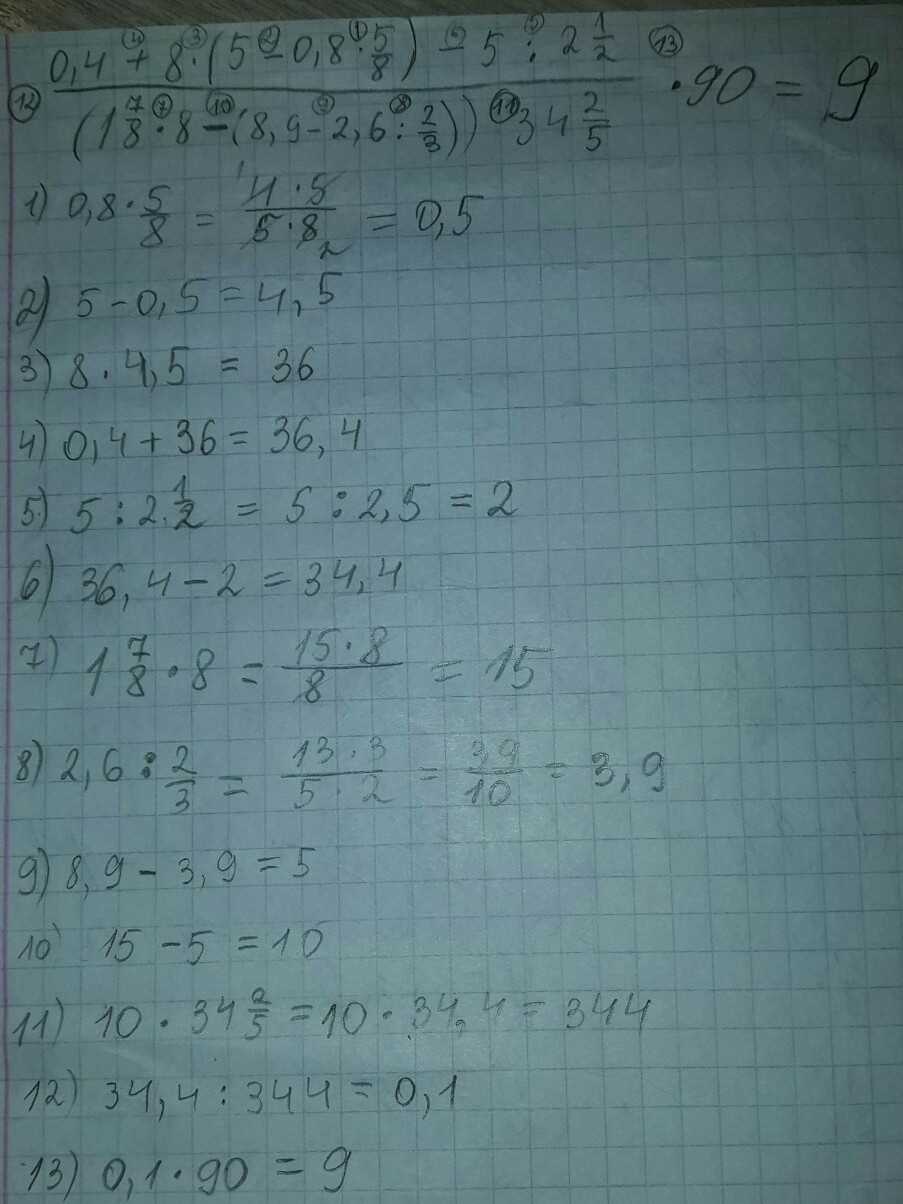 0,4 + 8 · (5 − 0,8 · 5/8) − 5 : 2 1/2
(1 7/8 · 8 − (8,9 − 2,6 : 2/3)) · 34 2/5
· 90 = 9
1) 0,8 · 5/8 = 4 · 5 / 5 · 8 = 0,5
1 2
2) 5 − 0,5 = 4,5
3) 8 · 4,5 = 36
4) 0,4 + 36 = 36,4
5) 5 : 2 1/2 = 5 : 2,5 = 2
6) 36,4 − 2 = 34,4
7) 1 7/8 · 8 = 15 · 8 / 8 = 15
8) 2,6 : 2/3 = 13 · 3 / 5 · 2 = 39/10 = 3,9
9) 8,9 − 3,9 = 5
10) 15 − 5 = 10
11) 10 · 34 2/5 = 10 · 34,4 = 344
12) 34,4 : 344 = 0,1
13) 0,1 · 90 = 9